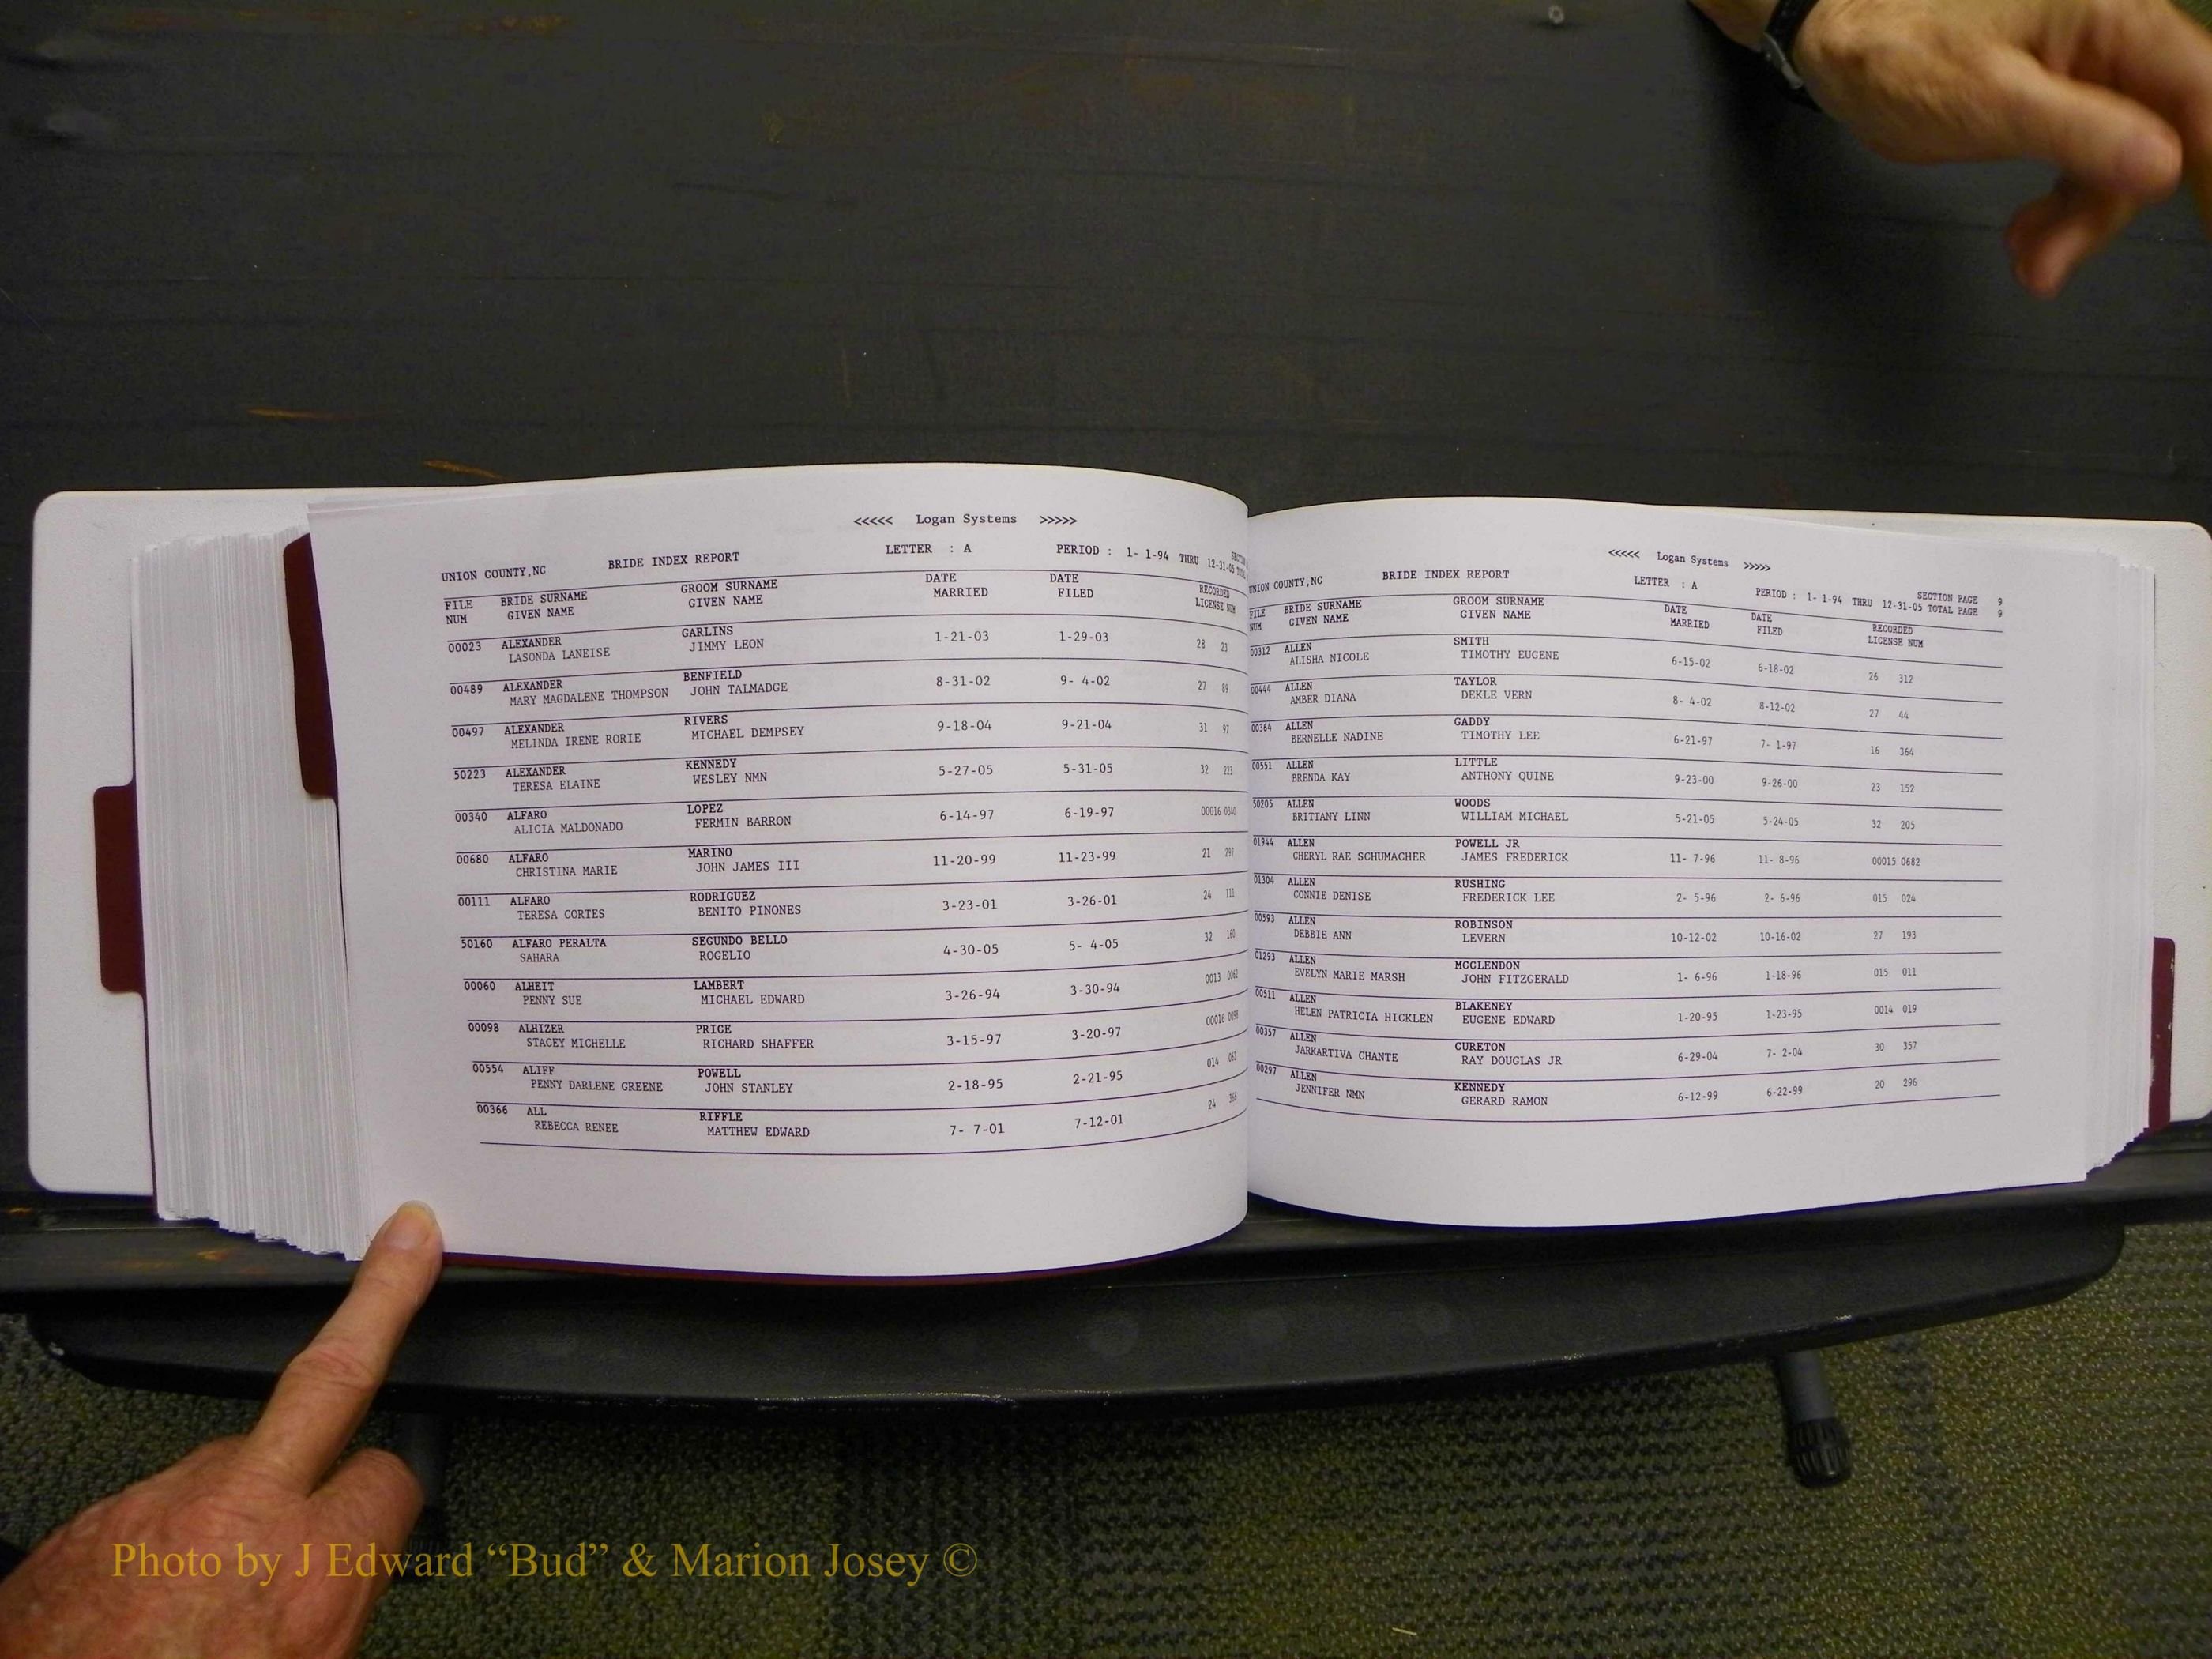 <<<<< Logan Systems >>>>>
UNION COUNTY,NC BRIDE INDEX REPORT LETTER : A PERIOD : 1- 1-94 THRU 12-31-05
FILE BRIDE SURNAME GROOM SURNAME DATE DATE RECORDED
NUM GIVEN NAME GIVEN NAME MARRIED FILED LICENSE NUM
00023 ALEXANDER GARLINS 1-21-03 1-29-03 28 23
LASONDA LANEISE JIMMY LEON
00489 ALEXANDER BENFIELD 8-31-02 9- 4-02 27 89
MARY MAGDALENE THOMPSON JOHN TALMADGE
00497 ALEXANDER RIVERS 9-18-04 9-21-04 31 97
MELINDA IRENE RORIE MICHAEL DEMPSEY
50223 ALEXANDER KENNEDY 5-27-05 5-31-05 32 223
TERESA ELAINE WESLEY NMN
00340 ALFARO LOPEZ 6-14-97 6-19-97 00016 0340
ALICIA MALDONADO FERMIN BARRON
00680 ALFARO MARINO 11-20-99 11-23-99 21 297
CHRISTINA MARIE JOHN JAMES III
00111 ALFARO RODRIGUEZ 3-23-01 3-26-01 24 111
TERESA CORTES BENITO PINONES
50160 ALFARO PERALTA SEGUNDO BELLO 4-30-05 5- 4-05 32 160
SAHARA ROGELIO
00060 ALHEIT LAMBERT 3-26-94 3-30-94 0013 0062
PENNY SUE MICHAEL EDWARD
00098 ALHIZER PRICE 3-15-97 3-20-97 00016 0098
STACEY MICHELLE RICHARD SHAFFER
00554 ALIFF POWELL 2-18-95 2-21-95 014 062
PENNY DARLENE GREENE JOHN STANLEY
00366 ALL RIFFLE 7- 7-01 7-12-01 24 366
REBECCA RENEE MATTHEW EDWARD
<<<<< Logan Systems >>>>>
UNION COUNTY,NC BRIDE INDEX REPORT LETTER : A PERIOD : 1- 1-94 THRU 12-31-05 SECTION PAGE 9
TOTAL PAGE 9
FILE BRIDE SURNAME GROOM SURNAME DATE DATE RECORDED
NUM GIVEN NAME GIVEN NAME MARRIED FILED LICENSE NUM
00312 ALLEN SMITH 6-15-02 6-18-02 26 312
ALISHA NICOLE TIMOTHY EUGENE
00444 ALLEN TAYLOR 8- 4-02 8-12-02 27 44
AMBER DIANA DEKLE VERN
00364 ALLEN GADDY 6-21-97 7- 1-97 16 364
BERNELLE NADINE TIMOTHY LEE
00551 ALLEN LITTLE 9-23-00 9-26-00 23 152
BRENDA KAY ANTHONY QUINE
50205 ALLEN WOODS 5-21-05 5-24-05 32 205
BRITTANY LINN WILLIAM MICHAEL
01944 ALLEN POWELL JR 11- 7-96 11- 8-96 00015 0682
CHERYL RAE SCHUMACHER JAMES FREDERICK
01304 ALLEN RUSHING 2- 5-96 2- 6-96 015 024
CONNIE DENISE FREDERICK LEE
00593 ALLEN ROBINSON 10-12-02 10-16-02 27 193
DEBBIE ANN LEVERN
01293 ALLEN MCCLENDON 1- 6-96 1-18-96 015 011
EVELYN MARIE MARSH JOHN FITZGERALD
00511 ALLEN BLAKENEY 1-20-95 1-23-95 0014 019
HELEN PATRICIA HICKLEN EUGENE EDWARD
00357 ALLEN CURETON 6-29-04 7- 2-04 30 357
JARKARTIVA CHANTE RAY DOUGLAS JR
00297 ALLEN KENNEDY 6-12-99 6-22-99 20 296
JENNIFER NMN GERARD RAMON
Photo by J Edward “Bud” & Marion Josey ©